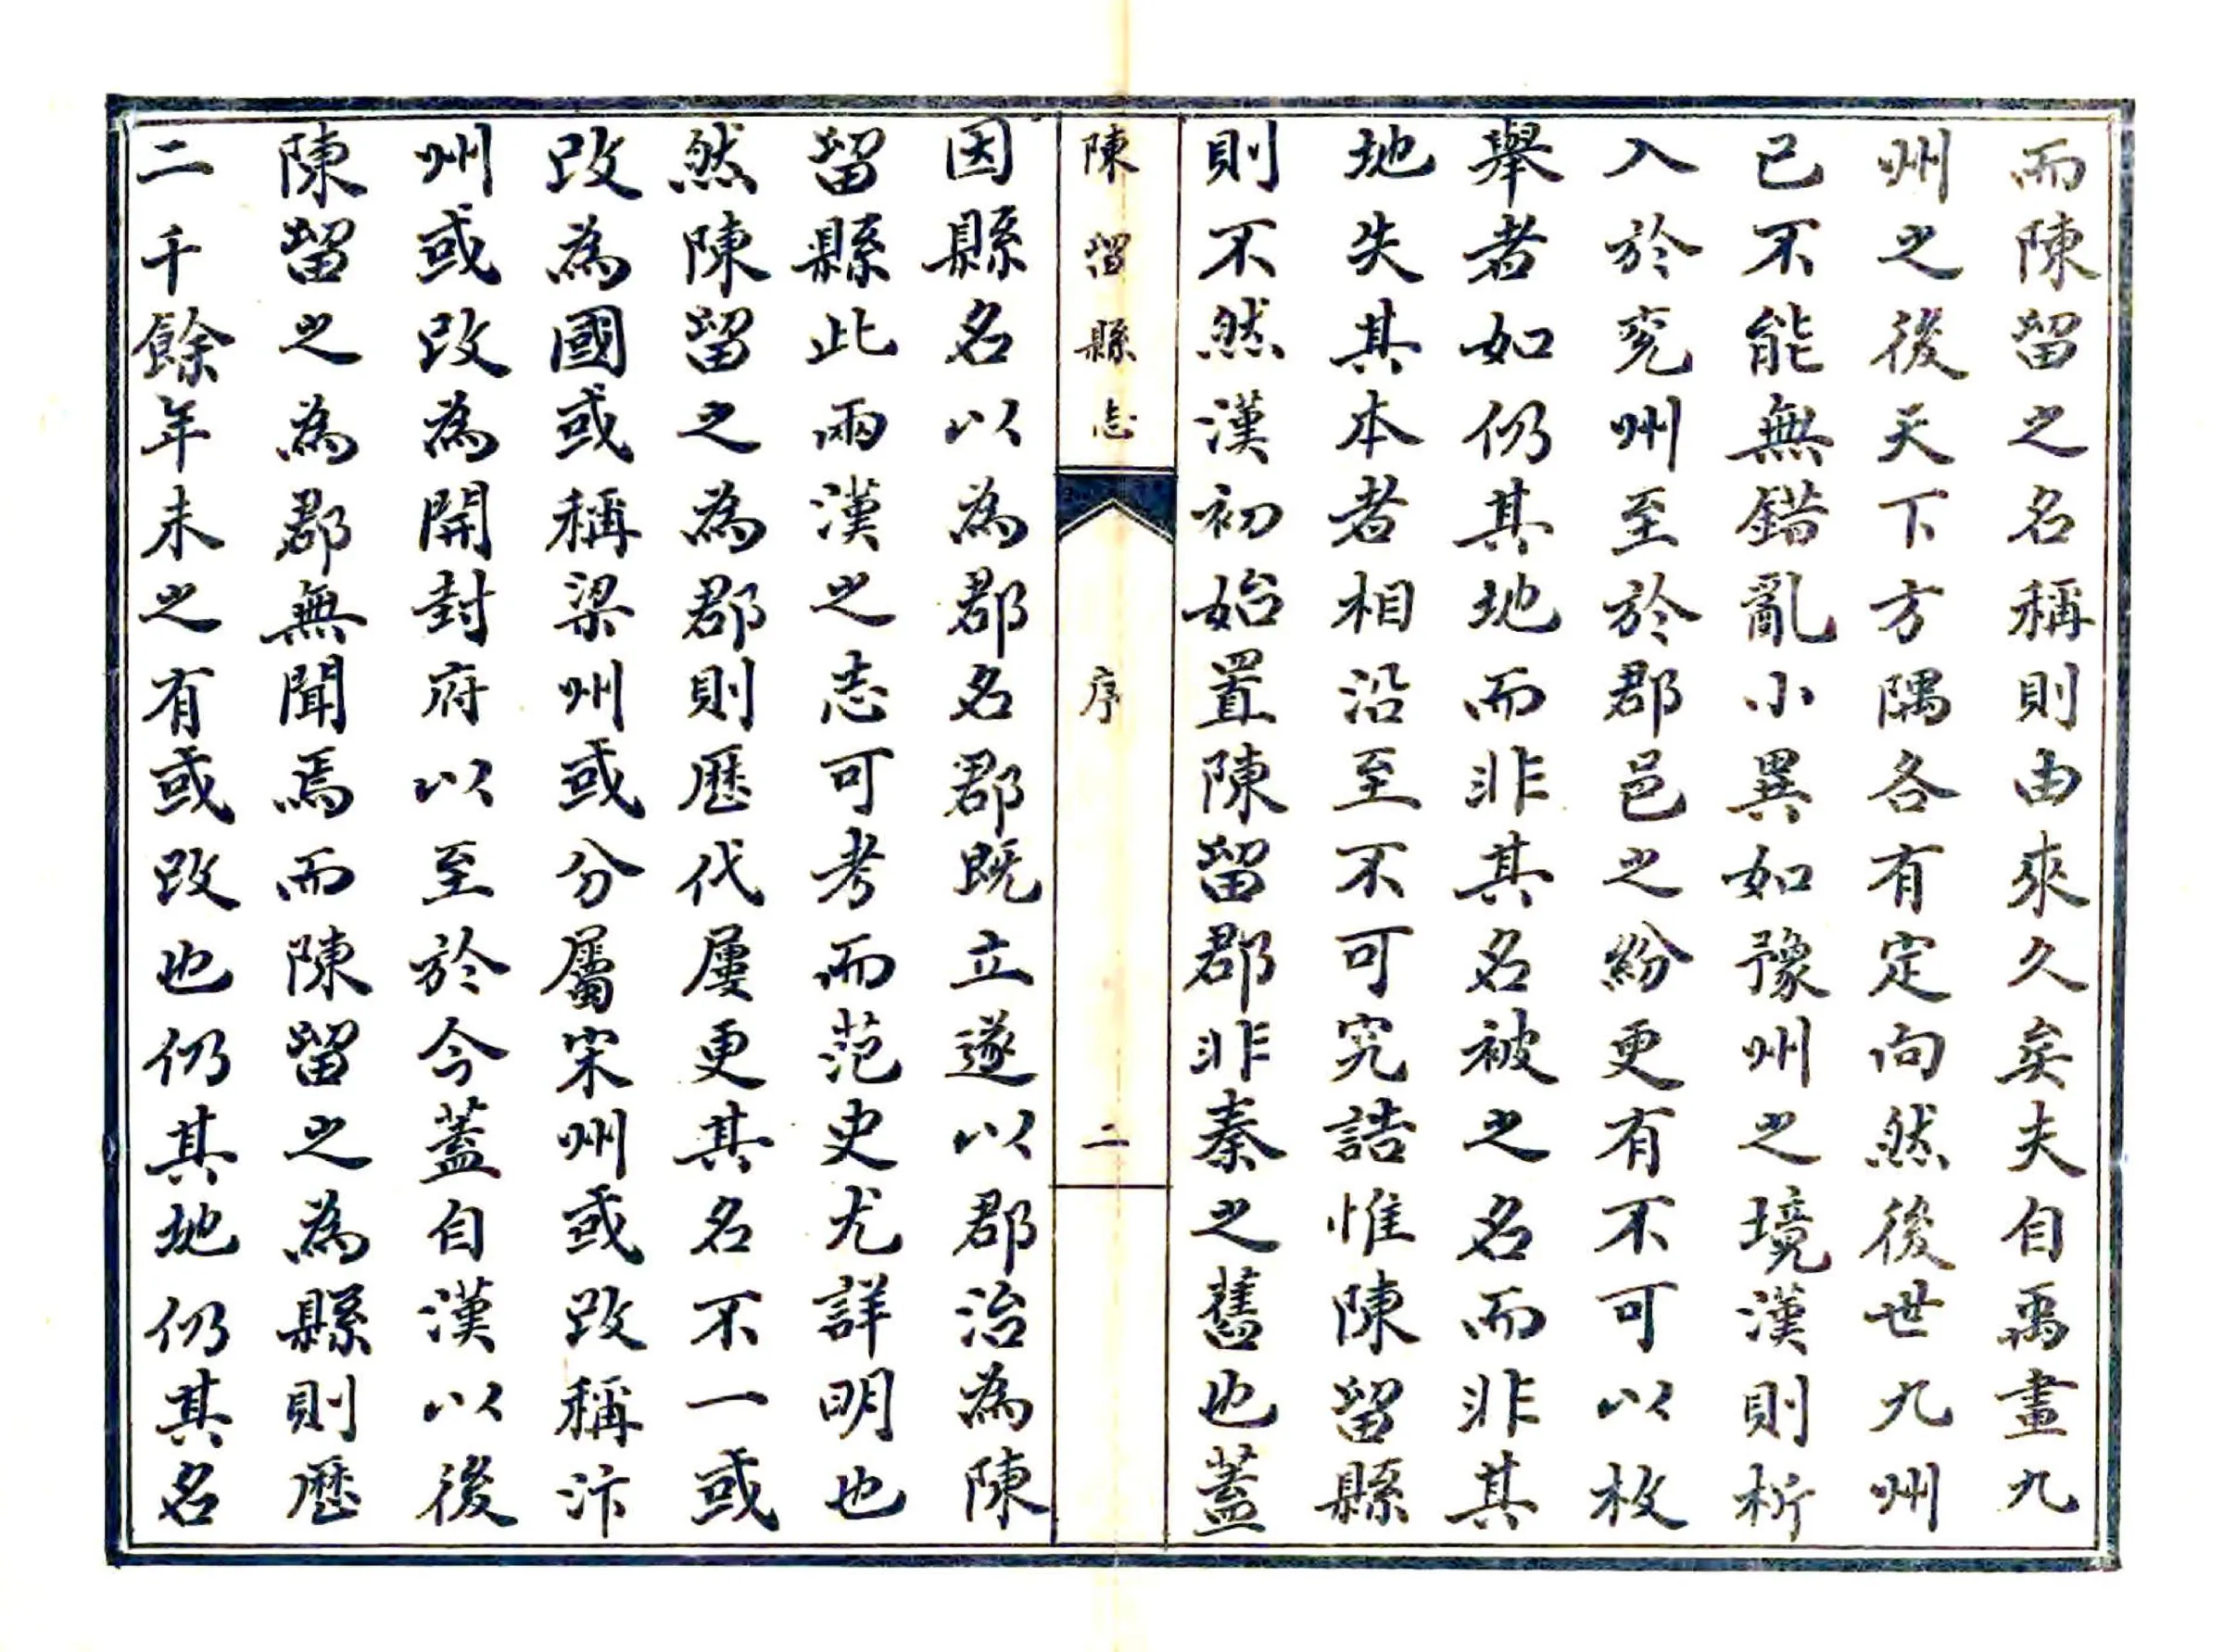 而陳留之名稱則由來久矣夫自禹畫九
州之後天下方隅各有定向然後世九州
已不能無錯亂小異如豫州之境漢則析
入於兖州至於郡邑之紛更有不可以枚
舉者如仍其地而非其名被之名而非其
地失其本者相沿至不可究詰惟陳留縣
則不然漢初始置陳留郡非秦之舊也蓋
陳留縣志
序
二
因縣名以為郡名郡既立遂以郡治為陳
留縣此兩漢之志可考而范史尤詳明也
然陳留之為郡則歷代屢更其名不一或
改為國或稱梁州或分屬宋州或改稱汴
州或改為開封府以至於今蓋自漢以後
陳留之為郡無聞焉而陳留之為縣則歷
二千餘年未之有或改也仍其地仍其名